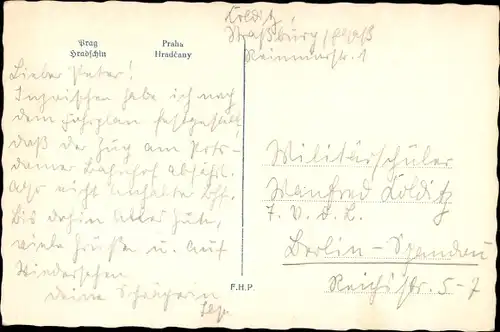 Colditz,
Straßburg/Elsaß
Reinmarstr. 1
Prag Praha
Hradschin Hradčany
Lieber Peter!
Inzwischen habe ich nach
dem Fahrplan festgestellt,
daß der Zug am Pots-
damer Bahnhof abfährt.
Also nicht Anhalter Bhf.
Bis dahin alles Gute,
viele Grüße u. auf
Wiedersehen
deine
Militärschüler
Manfred Colditz
7.
Berlin-Spandau
Reichsstr. 5-7
F.H.P.